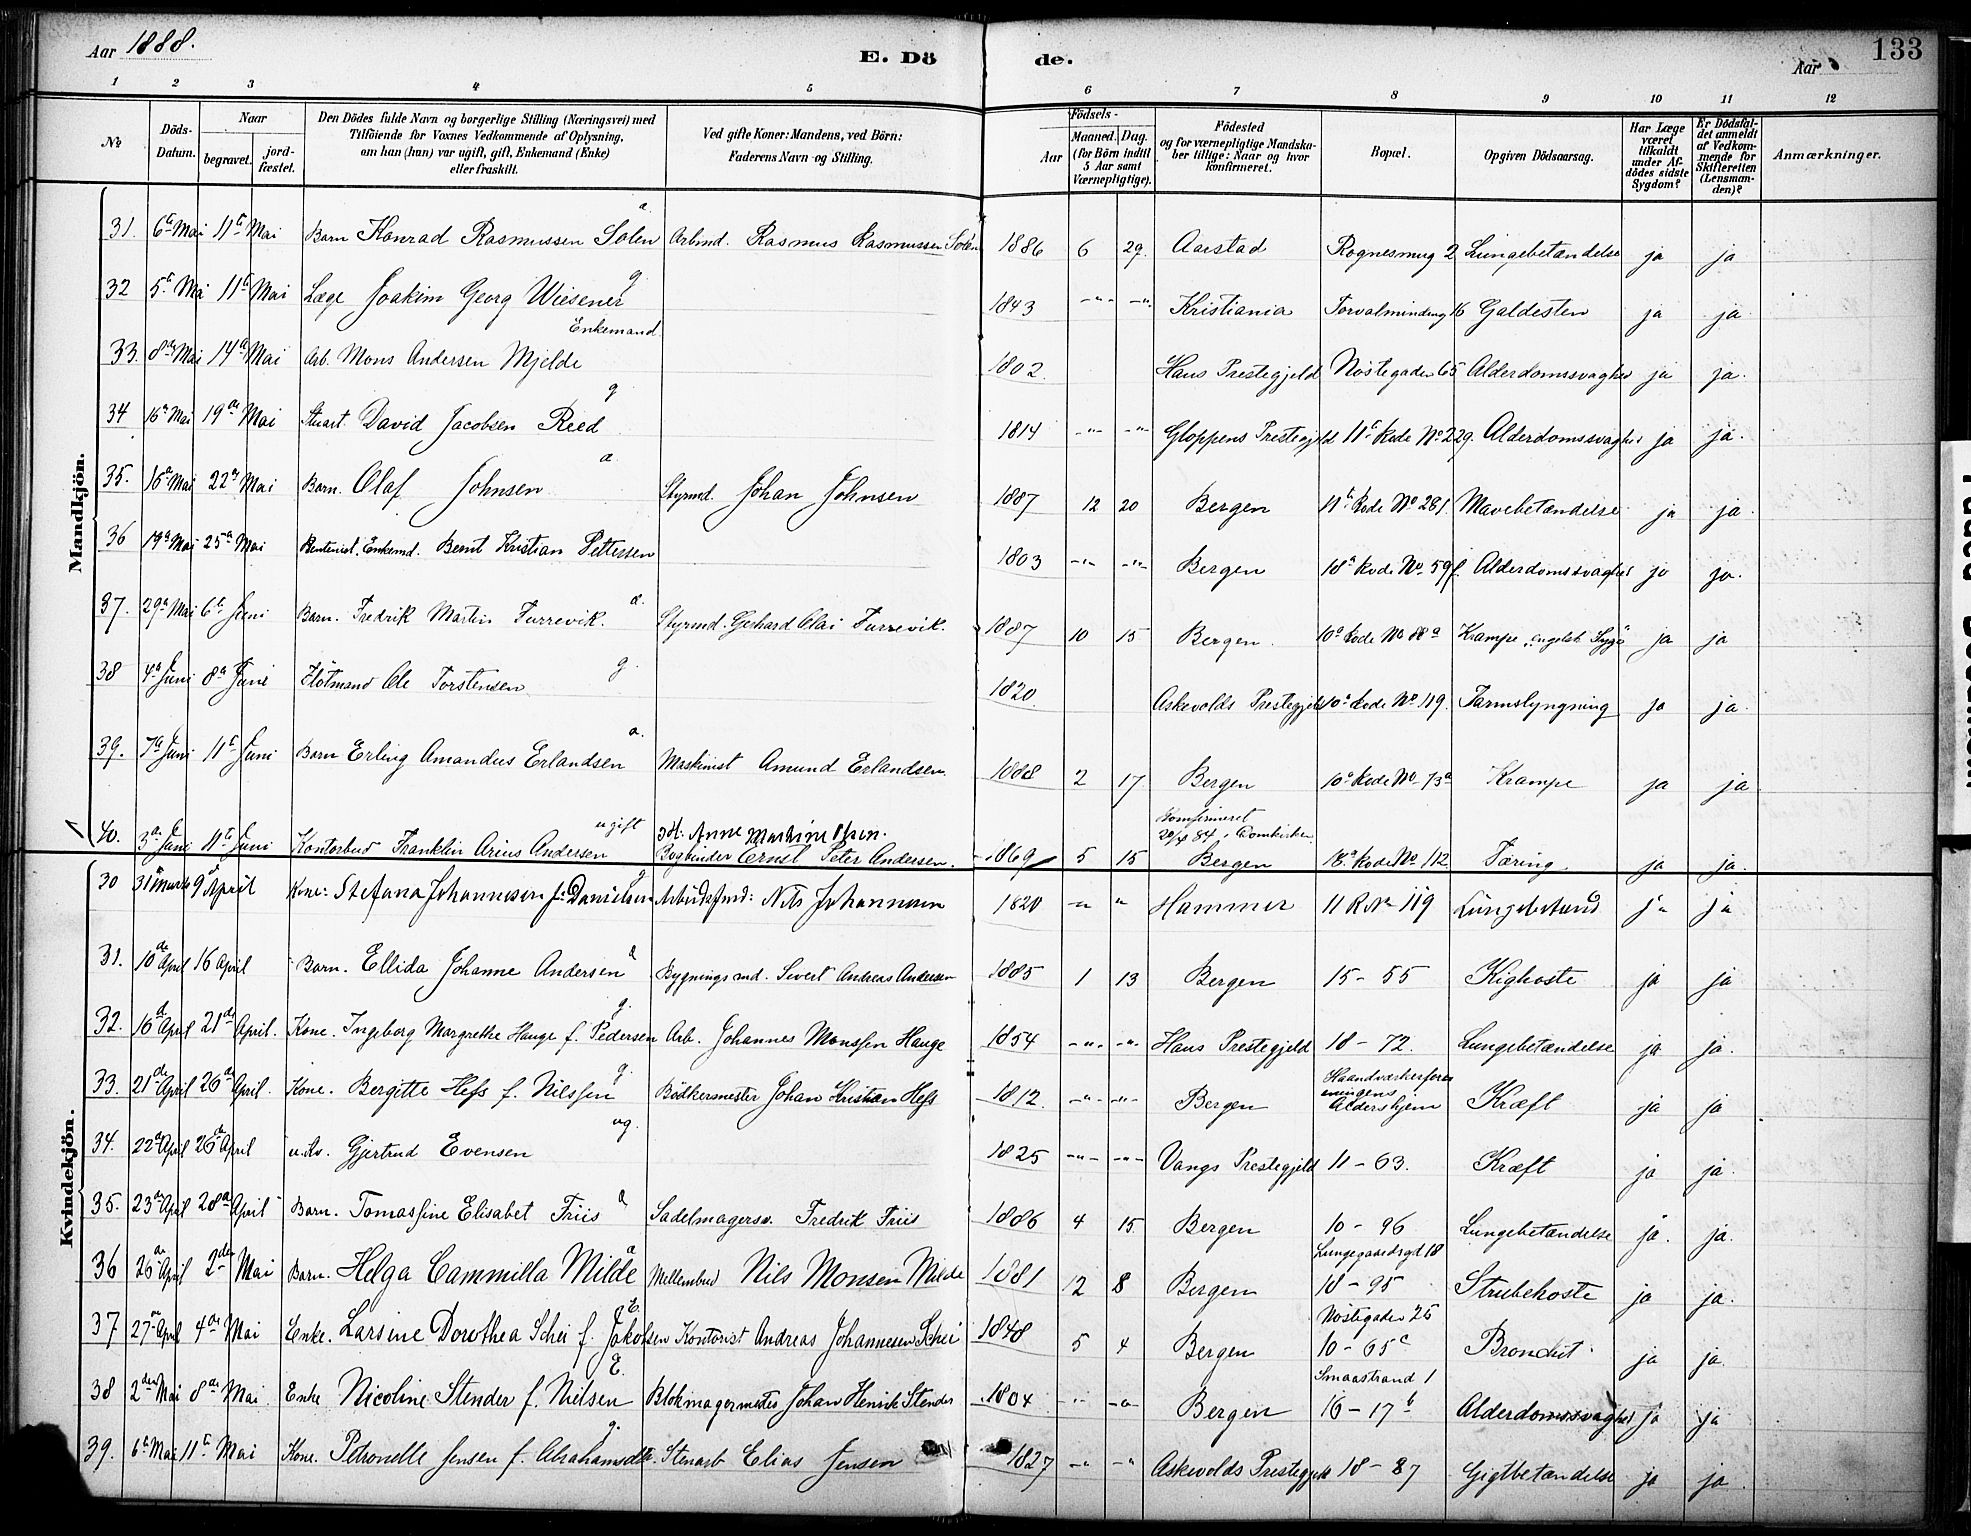 Aar 1888.
E. Dö
de.
Aar
133
1 2 3 4 5 6 7 8 9 10 11 12
No
Döds-Datum.
Naar
begravet.
jord-fæstet.
Den Dödes fulde Navn og borgerlige Stilling (Næringsvei) med
Tilföiende for Voxnes Vedkommende af Oplysning,
om han (hun) var ugift, gift, Enkemand (Enke)
eller fraskilt.
Ved gifte Koner: Mandens, ved Börn:
Faderens Navn og Stilling.
Födsels-
Aar
Maaned. Dag.
(for Börn indtil
5 Aar samt
Værnepligtige).
Födested
og for værnepligtige Mandska-
ber tillige: Naar og hvor
konfirmeret.
Bopæl.
Opgiven Dödsaarsag.
Har Læge
været
tilkaldt
under Af-
dödes sidste
Sygdom?
Er Dödsfal-
det anmeldt
af Vedkom-
mende for
Skifteretten
(Lensman-
den)?
Anmærkninger.
Mandkjön.
31. 6te Mai 11te Mai Barn Konrad Rasmussen Solen a Arbmd. Rasmus Rasmussen Solen 1886 6 29. Aarstad Rognesmug 2 Lungebetændelse ja ja
32 5te Mai 11te Mai Læge Joakim Georg Wiesener g. 1843 -"- -"- Kristiania Torvalminding 16 Galdesten ja ja
Enkemand
33. 8de Mai 14de Mai Arb. Mons Andersen Mjelde 1802. Haus Prestegjeld Nöstegaden 65 Alderdomssvaghed ja ja.
34 16de Mai 19de Mai Stuart. David Jacobsen Reed g 1814 -"- -"- Gloppens Prestegjeld 11te Rode No 229. Alderdomssvaghed ja ja.
35. 16de Mai 22de Mai Barn. Olaf Johnsen a Styrmd. Johan Johnsen 1887 12 20 Bergen 11te Rode No 281. Mavebetændelse ja ja
36 19de Mai 25de Mai Rentenist. Enkemd. Bernt Kristian Pettersen 1803 -"- -"- Bergen 18de Rode No 59f. Alderdomssvaghed ja ja.
37. 29de Mai 6te Juni Barn. Fredrik Martin Furrevik. a. Styrmd. Gerhard Olai Furrevik. 1887 10 15 Bergen. 10de Rode No 88a Krampe, "engelsk Syge" ja ja
38 4de Juni 8de Juni Flötmand Ole Torstensen g. 1820. Askevolds Prestegjeld 10de Rode No 119. Tarmslyngning ja ja.
39. 7de Juni 11te Juni Barn Erling Amandus Erlandsen a. Maskinist Amund Erlandsen. 1888 2 17 Bergen 10de Rode No 73a Krampe ja ja
40. 3de Juni 11te Juni Kontorbud Franklin Arius Andersen ugift
M: Anne Martine
Bogbinder Ernst Peter Andersen. 1869 5 15
Konfirmeret
20/4 84 i Domkirken
Bergen 18de Rode No 112 Tæring. ja ja.
Kvindekjön.
30 31 Marts 9 April Kone: Stefana Johannesen f: Danielsen g Arbeidsfmd: Nils Johannesen 1820 -"- " Hammer 11 R No 119 Lungebetænd ja ja
31. 10de April 16 April Barn. Ellida Johanne Andersen a Bygningsmd. Sivert Andreas Andersen 1885 1 13 Bergen 15 - 55 Kighoste ja ja
32. 16de April 21de April. Kone. Ingeborg Margrethe Hauge f. Pedersen g. Arb. Johannes Monssen Hauge 1854 -"- -"- Haus Prestegjeld 18 - 72. Lungebetændelse ja ja.
33. 21de April 26de April. Kone. Bergitte Hess f. Nilssen g. Bödkermester Johan Kristian Hess 1812. -"- -"- Bergen
Haandværkerfore
eningens
Aldershjem Kræft ja ja
34. 22de April 26de April u.Kv. Gjertrud Evensen ug. 1825 -"- -"- Vangs Prestegjeld 11 - 63. Kræft ja ja.
35. 23de April 28de April Barn. Tomassine Elisabet Friis a Sadelmagersv. Fredrik Friis 1886 4 15 Bergen 10 - 96 Lungebetændelse ja. ja.
36 26de April 2den Mai Barn. Helga Cammilla Milde a Mellembud Nils Monsen Milde 1881 12 8 Bergen
Lungegaardsgd 18
18 - 95 Strubehoste ja ja.
37 27de April 4de Mai Enke. Larsine Dorothea Schei f. Jakobsen E. Kontorist Andreas Johannesen Schei 1848 5 4 Bergen
Nöstegaden 25
10 - 65c Bronchit. ja ja
38 2den Mai 8de Mai. Enke Nicoline Stender f. Nielsen E. Blokmagermester Johan Henrik Stender 1804 -"- -"- Bergen
Smaastrand 1
16 - 17b Alderdomssvaghed ja ja
39. 6te Mai 11te Mai Kone. Petronelle Jensen f. Abrahamsdtr. g. Stenarb Elias Jensen 1827 -"- -"- Askevolds Prestegjeld 18 - 87 Gigtbetændelse ja ja